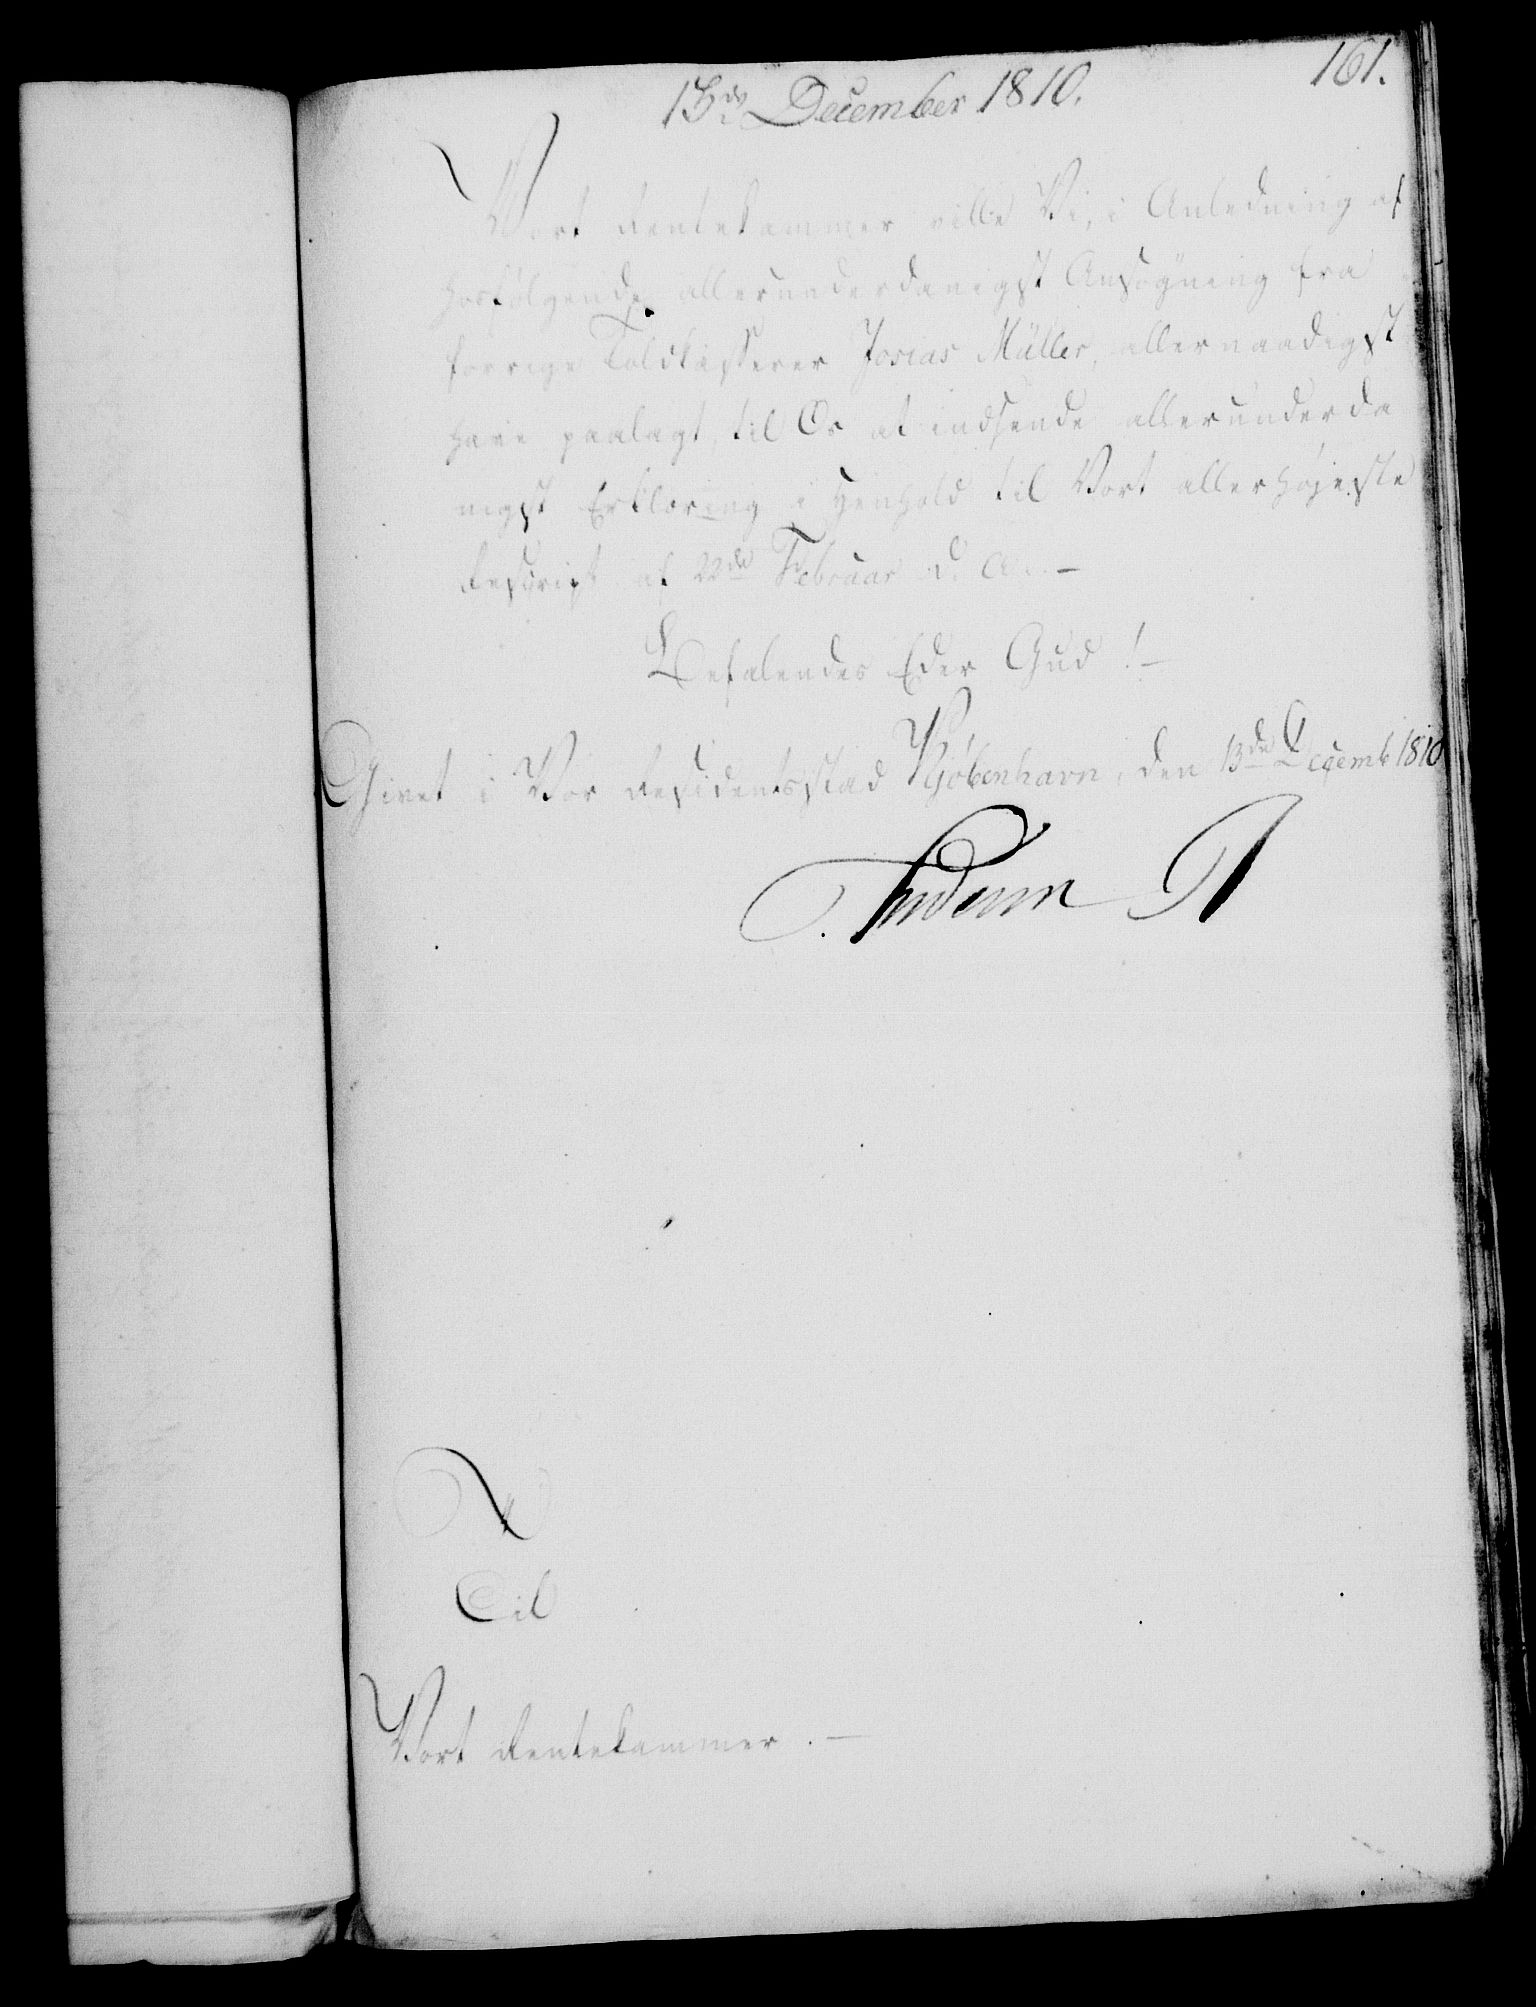 161.
13de December 1810.
Vort Rentekammer ville Vi, i Anledning af
hosfølgende allerunderdanigst Ansøgning fra
forrige Toldkasserer Josias Müller, allernaadigst
have paalagt, til Os at indsende allerunderda
nigst Erklæring i Henhold til Vort allerhøjeste
Rescript af 22de Februar d. A. –
Befalendes Eder Gud! –
Givet i Vor Residentsstad Kjöbenhavn, den 13de Decemb 1810
Frideric R
Til
Vort Rentekammer. –